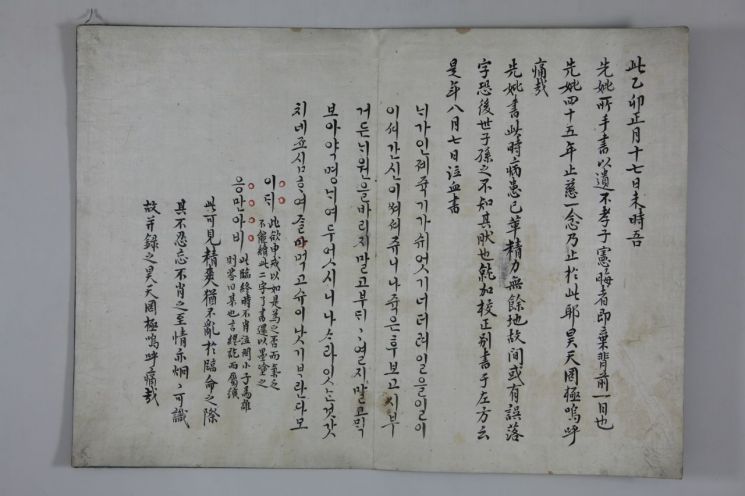 此乙卯正月十七日未時吾
先妣所手書以遺不孝子憲晦者即棄背前一日也
先妣四十五年止慈一念乃止於此耶昊天罔極嗚呼
痛哉
先妣書此時病患已革精力無餘地故間或有誤落
字恐後世子孫之不知其眹也玆加校正別書于左方云
是年八月七日泣血書
너가인제죽기가쉬엇기너더러일을일이
이셔간신이써셔쥬니나죽은후보고시부
거든너원을바리지말고부듸〻열지말고
보아약명너여두엇시니나
치네죠심ᄒᆞ여줄마먹고슈이낫기ᄇᆞ란다모
이듸
此欲申戒以如是爲之否而氣乏
不能續此二字了書還以墨塗之
응만아비
此臨終時不肖泣問小子爲誰
則答曰某也言
此可見精爽猶不亂於臨命之際
其不忍忘不肖之至情亦炯〻可識
故并錄之昊天罔極嗚呼痛哉